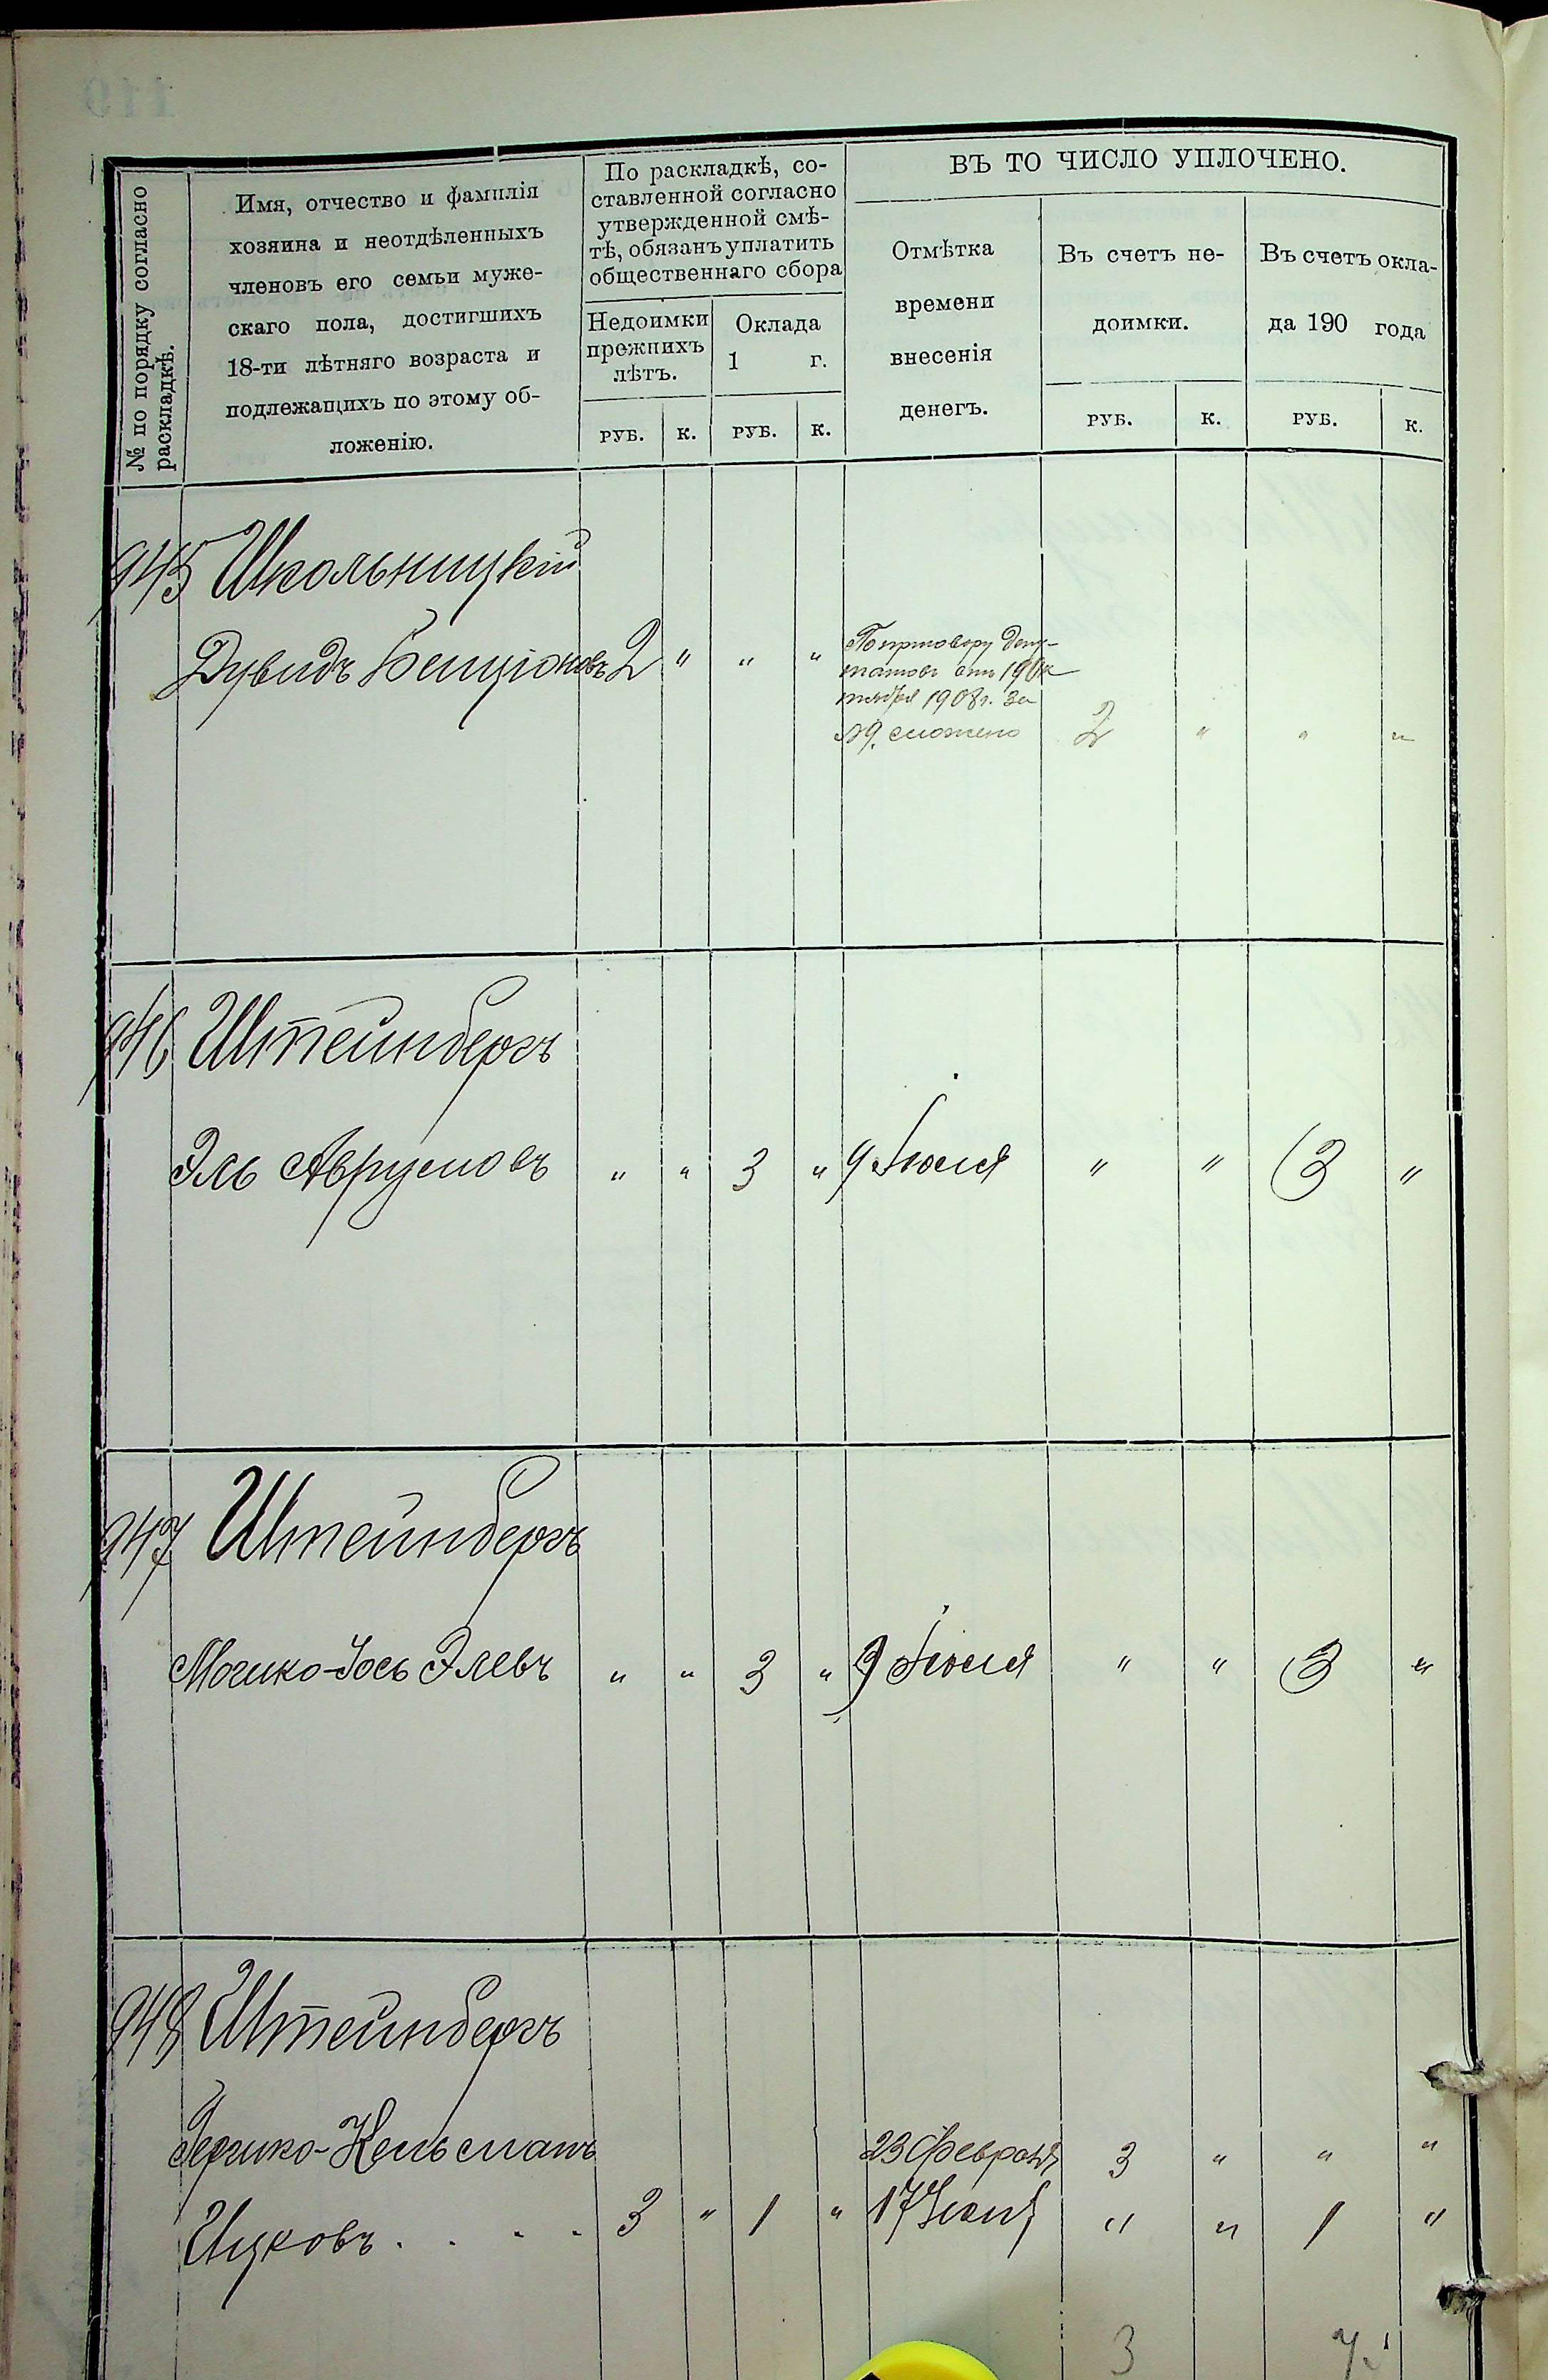 110
№ по порядку согласно
раскладкѣ.
Имя, отчество и фамилія
хозяина и неотдѣленныхъ
членовъ его семьи муже-
скаго пола, достигшихъ
18-ти лѣтняго возраста и
подлежащихъ по этому об-
ложенію.
По раскладкѣ, со-
ставленной согласно
утвержденной смѣ-
тѣ, обязанъ уплатить
общественнаго сбора
Недоимки
прежнихъ
лѣтъ.
Оклада
1 г.
РУБ. К. РУБ. К.
ВЪ ТО ЧИСЛО УПЛОЧЕНО.
Отмѣтка
времени
внесенія
денегъ.
Въ счетъ не-
доимки.
Въ счетъ окла-
да 190 года
РУБ. К. РУБ. К.
945 Школьницкій
Дувидъ Бенціоновъ 2 " " "
По приговору депу-
татовъ отъ 19 Ок-
тября 1908 г. за
№9. сложено 2 " " "
946 Штейнбергъ
Эль Аврумовъ " " 3 " 9 Іюля " " 3 "
947 Штейнбергъ
Мошко-Іось Элевъ " " 3 " 9 Іюля " " 3 "
948 Штейнбергъ
Гершко-Кельманъ 23 Февраля 3 " " "
Ицковъ . . . . 3 " 1 " 17 " " 1 "
3